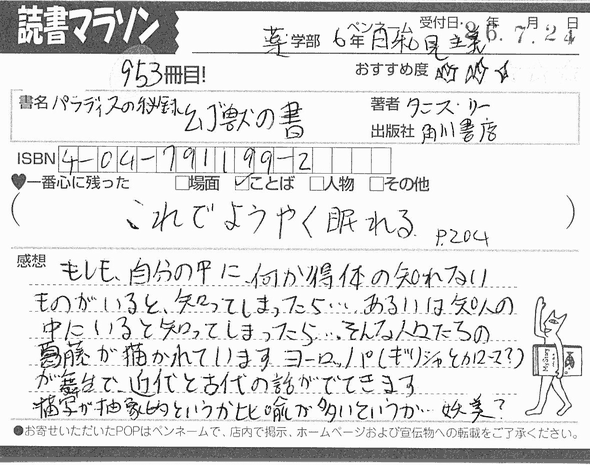 読書マラソン
薬学部 6年 ペンネーム 日和見主義 受付日・26年 7月 24日
953冊目!
おすすめ度 ☆☆☆
書名 パラディスの秘録 幻獣の書
著者 タニス・リー
出版社 角川書店
ISBN 4-04-791199-2
♥一番心に残った □場面 ☑ことば □人物 □その他
(これでようやく眠れる P.204)
感想 もしも、自分の中に、何か得体の知れない
ものがいると、知ってしまったら…、あるいは知人の
中にいると知ってしまったら…、そんな人々たちの
葛藤が描かれています。ヨーロッパ(ギリシャとかローマ?)
が舞台で、近代と古代の話がでてきます
描写が抽象的というか比喩が多いというか… 妖美?
●お寄せいただいたPOPはペンネームで、店内で掲示、ホームページおよび宣伝物への転載をご了承ください。